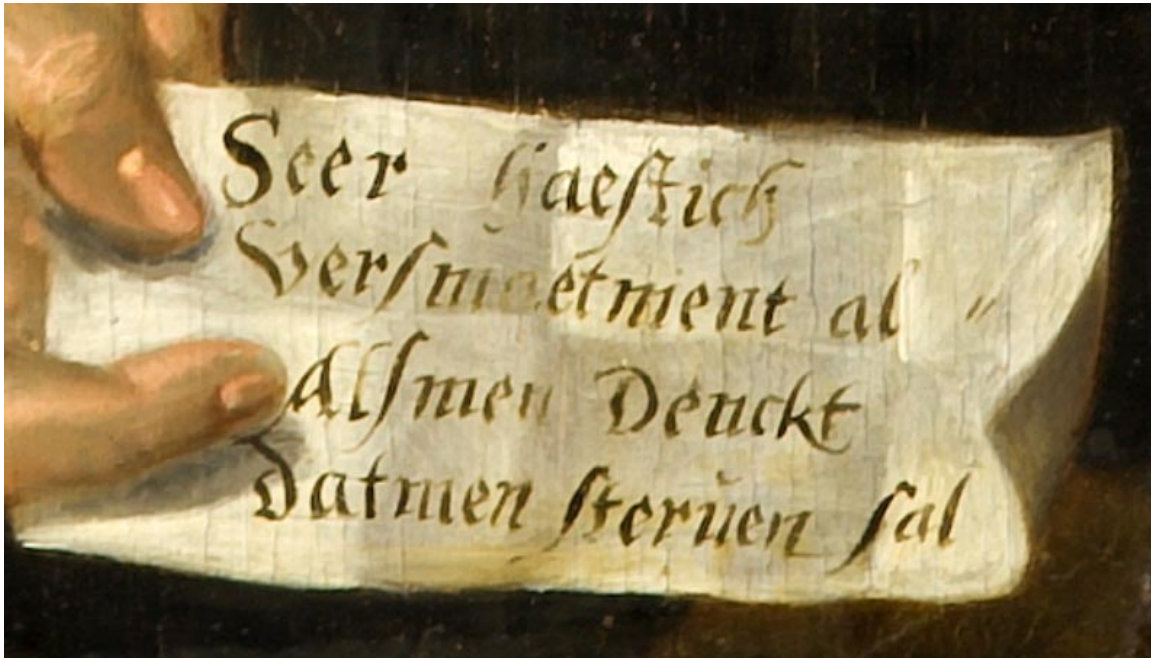 Seer haestich
Versmaetment al
Alsmen Denckt
Datmen sterven sal